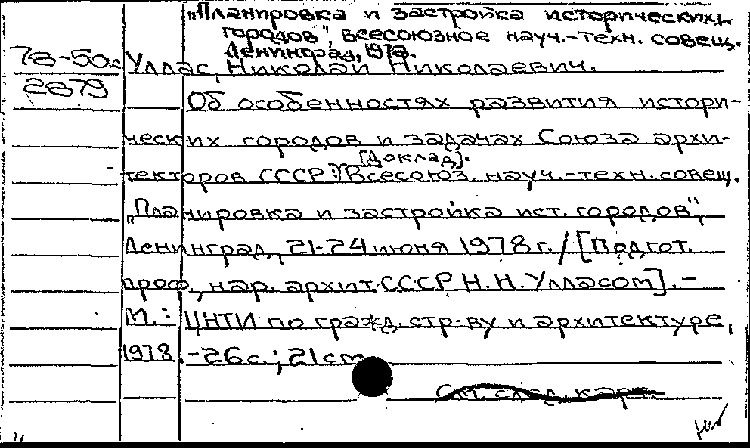 „Планировка и застройка исторических
городов", всесоюзное науч.-техн. совещ.
Ленинград, 1978.
78-50с Уллас, Николай Николаевич.
2879
Об особенностях развития истори-
ческих городов и задачах Союза архи-
[Доклад].
текторов СССР: Всесоюз. науч.-техн. совещ.
„Планировка и застройка ист. городов",
Ленинград, 21-24 июня 1978 г. / [Подгот.
проф., нар. архит. СССР Н. Н. Улласом]. -
М.: ЦНТИ по гражд. стр-ву и архитектуре,
1978. - 26 с.; 21 cm
См. след. карт.